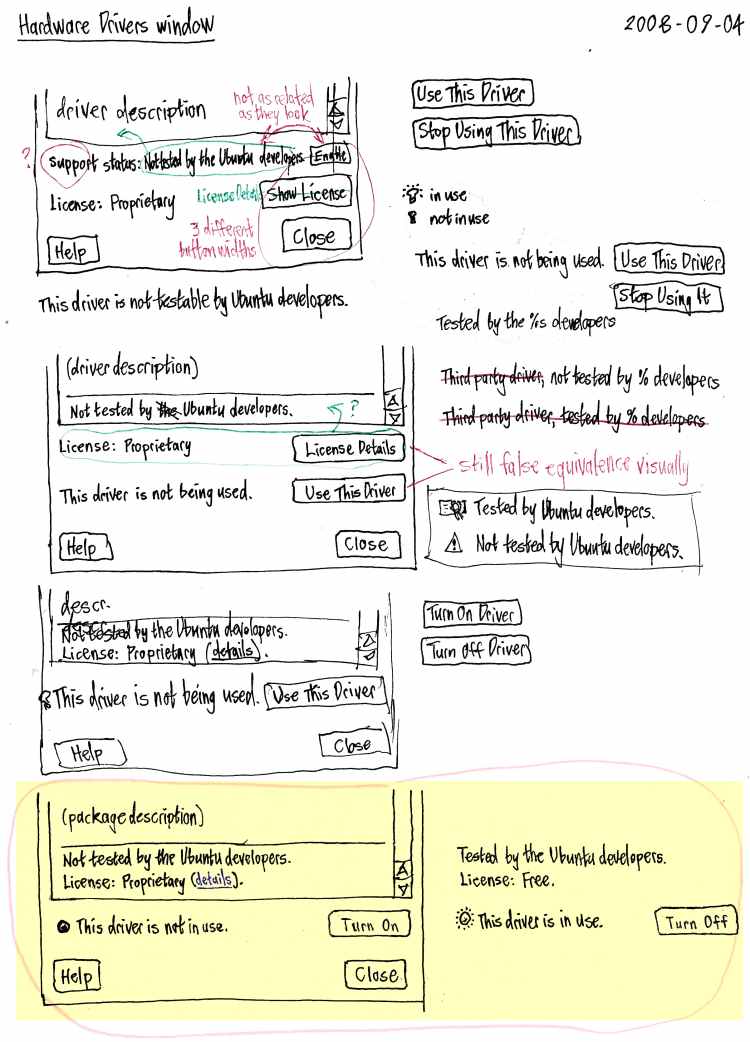 Hardware Drivers window
2008-09-04
driver description
not as related
as they look
?
Support status: Not tested by the Ubuntu developers. Enable
License: Proprietary
License Details
Show License
3 different
button widths
Help
Close
This driver is not testable by Ubuntu developers.
Use This Driver
Stop Using This Driver
: in use
not in use
This driver is not being used. Use This Driver
Stop Using It
Tested by the %s developers
Third party driver, not tested by % developers
Third party driver, tested by % developers
(driver description)
Not tested by the Ubuntu developers.
?
License: Proprietary
License Details
This driver is not being used.
Use This Driver
Help
Close
still false equivalence visually
Tested by Ubuntu developers.
Not tested by Ubuntu developers.
descr.
Not tested by the Ubuntu developers.
License: Proprietary (details).
This driver is not being used. Use This Driver
Help
Close
Turn On Driver
Turn Off Driver
(package description)
Not tested by the Ubuntu developers.
License: Proprietary (details).
This driver is not in use.
Turn On
Help
Close
Tested by the Ubuntu developers.
License: Free.
This driver is in use.
Turn Off